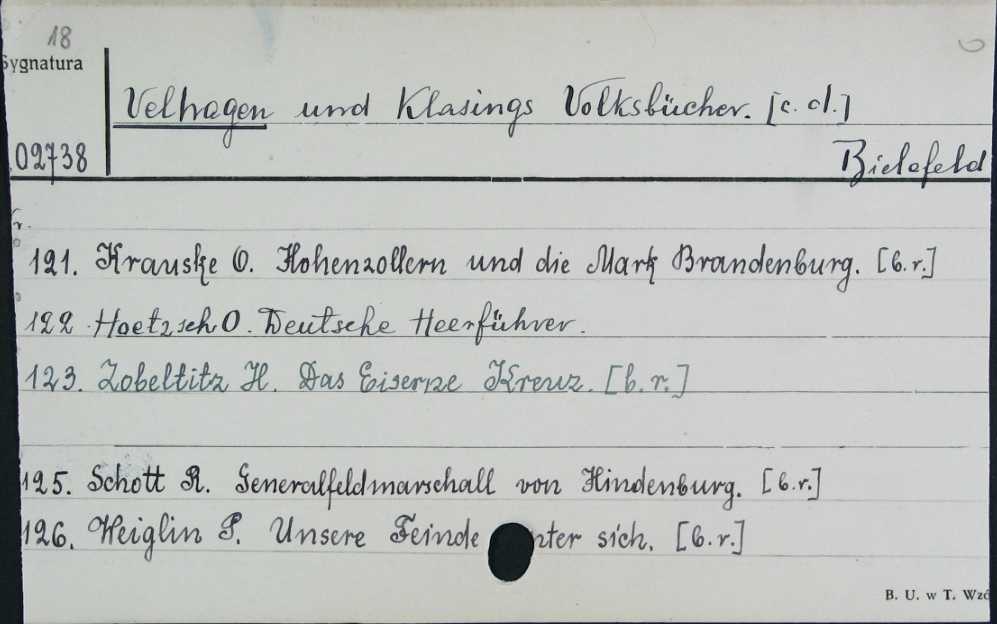 18
Sygnatura
Velhagen und Klasings Volksbücher. [c. d.]
02738
Bielefeld
121. Krauske O. Hohenzollern und die Mark Brandenburg. [b.r.]
122. Hoetzsch O. Deutsche Heerführer.
123. Zobeltitz H. Das Eiserne Kreuz. [b.r.]
125. Schott R. Generalfeldmarschall von Hindenburg. [b.r.]
126. Weiglin P. Unsere Feinde nter sich. [b.r.]
B. U. w T. Wzó